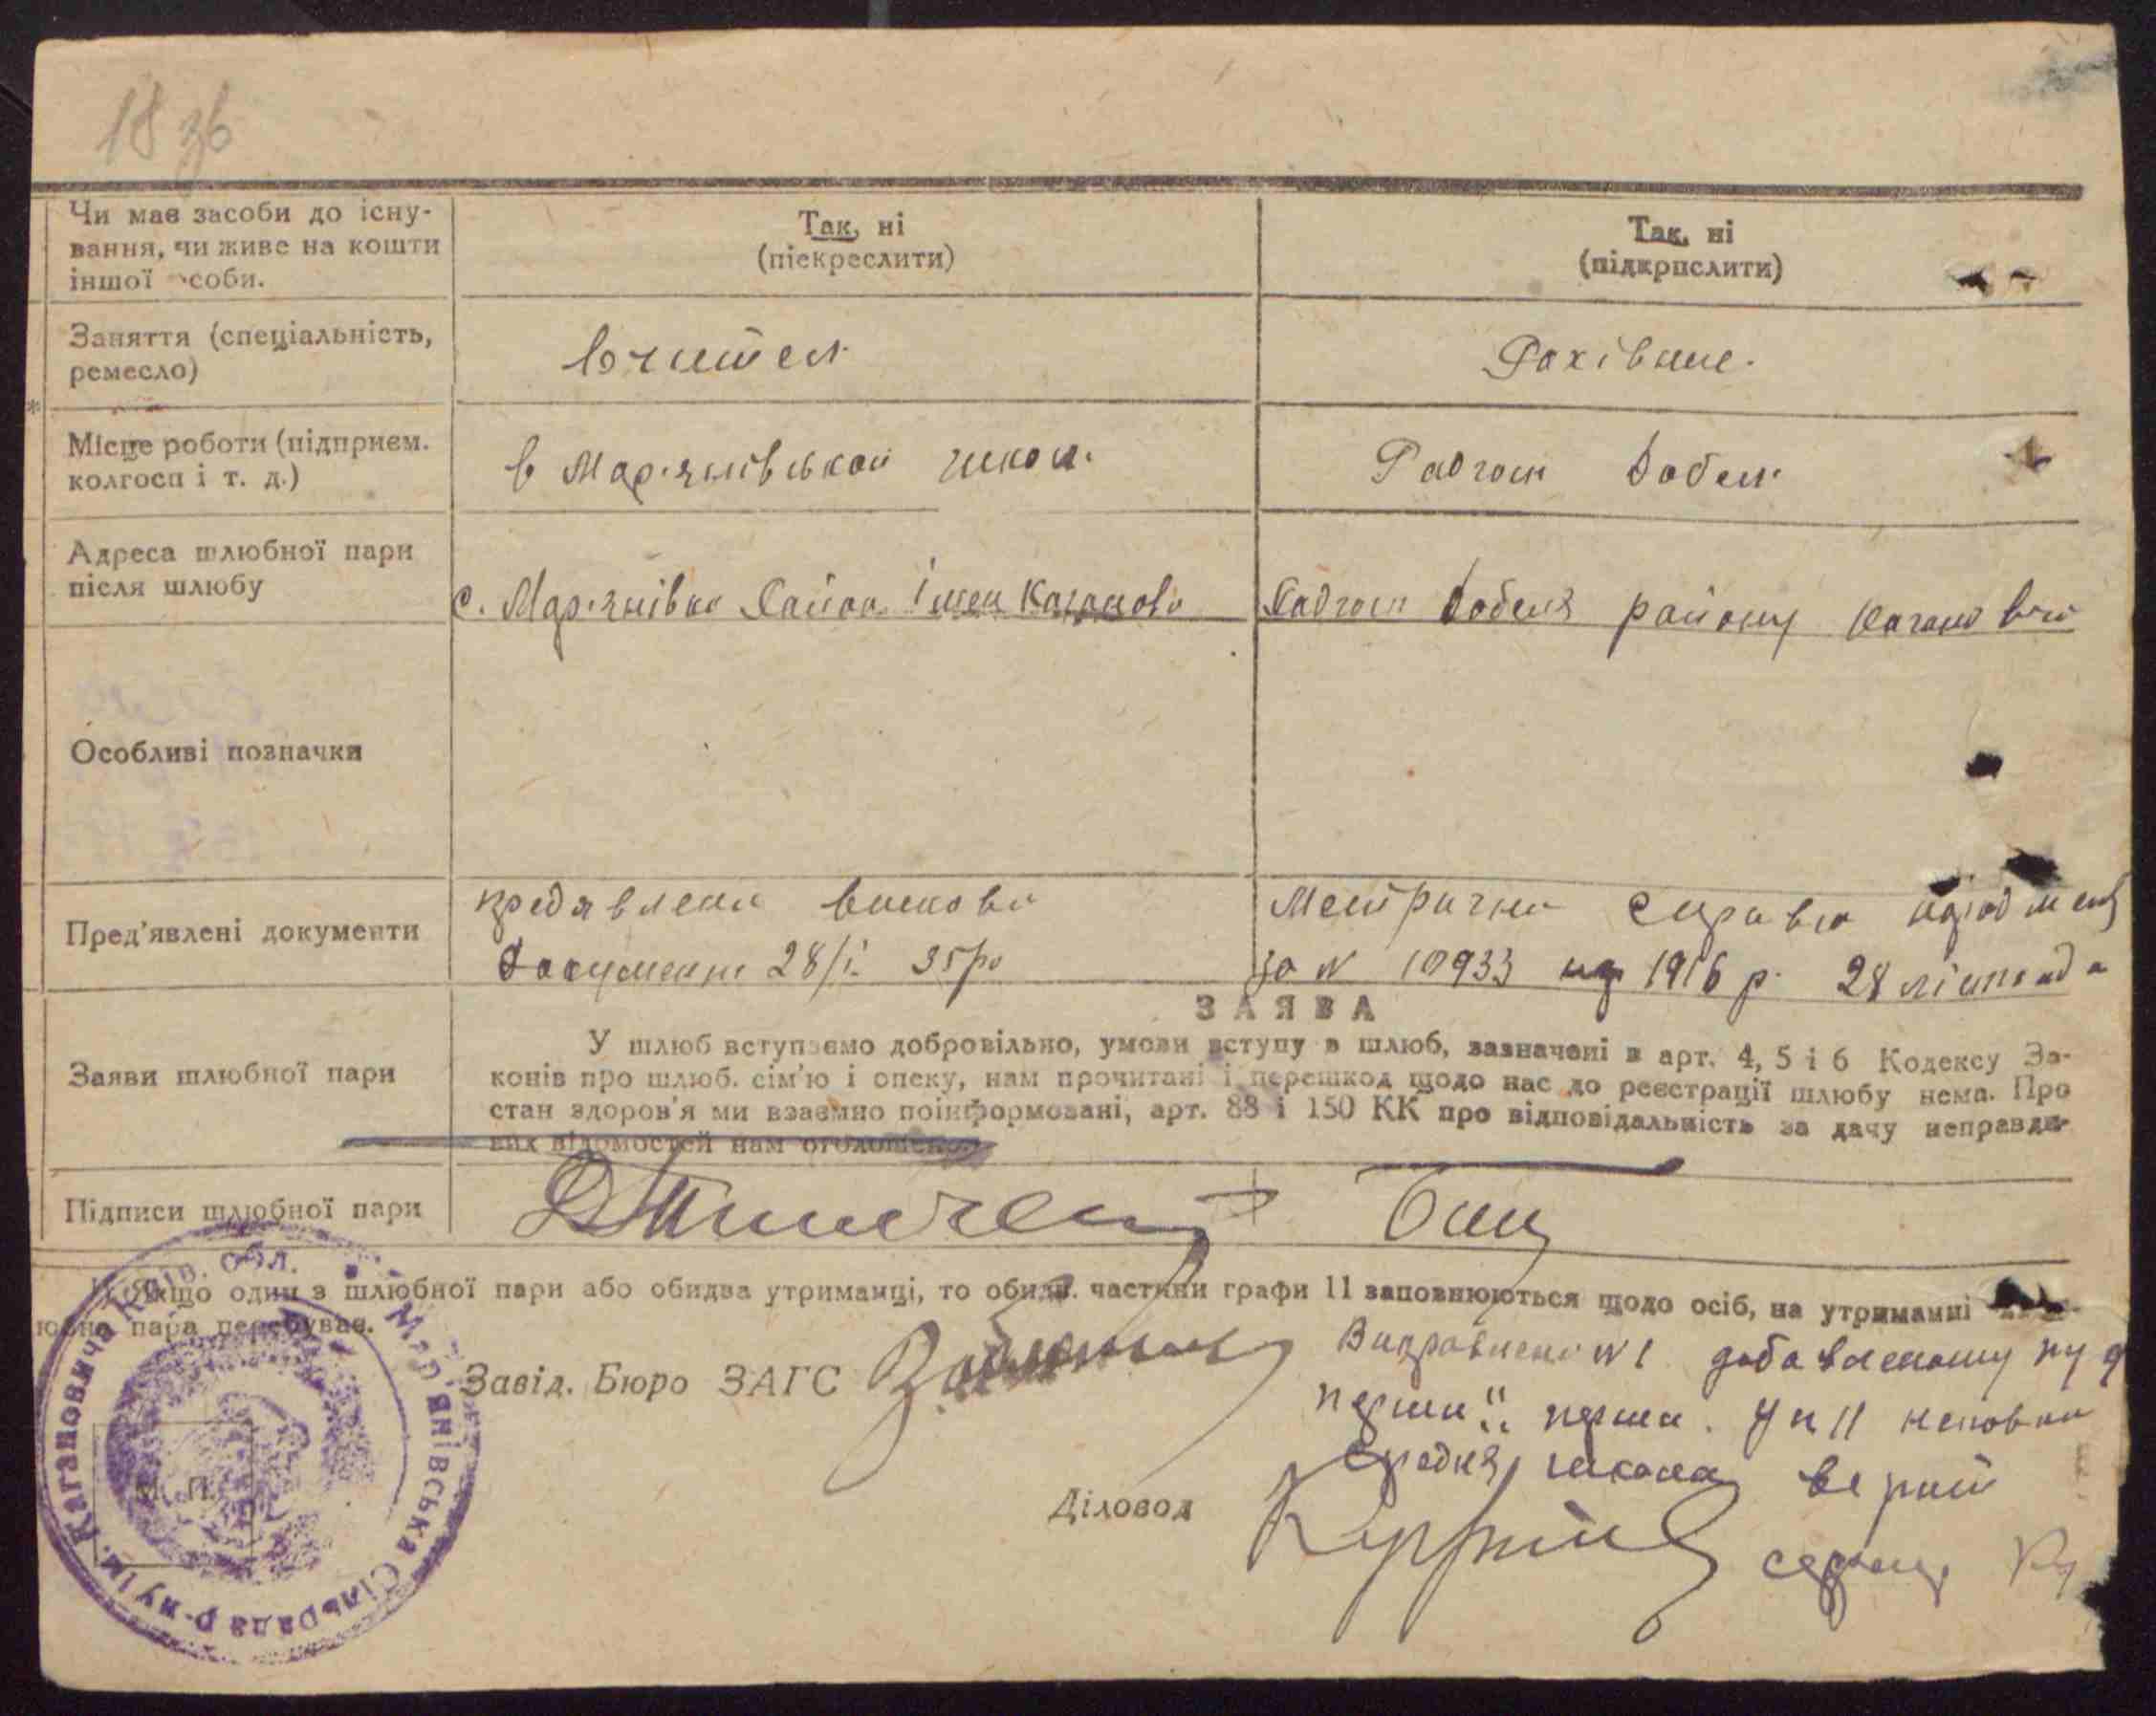 18 зв
Чи має засоби до існу-
вання, чи живе на кошти
іншої особи.
Так, ні
(піекреслити)
Так, ні
(підкрислити)
Заняття (спеціальність,
ремесло)
вчител
Рахівниц.
Місце роботи (підприєм.
колгосп і т. д.)
в Мар'янівській школі
Радгосп Бобел
Адреса шлюбної пари
після шлюбу
с. Мар'янівка Район. імен Каганови
Радгосп района Каганович
Особливі позначки
Пред'явлені документи
предявлени воискови
документи 28/І 35 ро
Метрична справка
за N 10933 1916 р. 28 лістопада
ЗАЯВА
Заяви шлюбної пари
У шлюб вступаємо добровільно, умови вступу в шлюб, зазначені в арт. 4, 5 і 6 Кодексу За-
конів про шлюб. сім'ю і опеку, нам прочитані і перешкод щодо нас до реєстрації шлюбу нема. Про
стан здоров'я ми взаємно поінформовані, арт. 88 і 150 КК про відповідальність за дачу неправди-
вих відомостей нам оголошено.
Підписи шлюбної пари
Якщо один з шлюбної пари або обидва утриманці, то обидв. частини графи 11 заповнюються щодо осіб, на утриманні
юбна пара перебуває.
Завід. Бюро ЗАГС
Виправлено N 1
перша. У п 11 неповна
средня школа верит
Діловод
М. П.
Мар'янівська Сільрада р-ну ім. Кагановича Київ. обл.